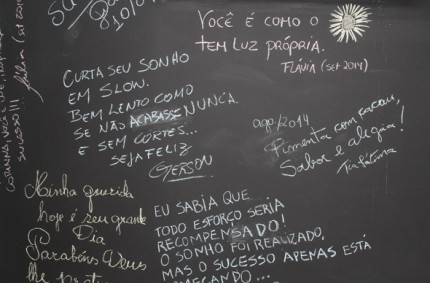 10/0
VOCÊ É COMO O
TEM LUZ PRÓPRIA.
FLÁVIA (set 2014)
CURTA SEU SONHO
EM SLOW.
BEM LENTO COMO
SE NÃO ACABASSE NUNCA.
E SEM CORTES...
SEJA FELIZ
GERSON
ago/2014
Pimenta com cacau,
Sabor e alegria!
Tia
SUCESSO!!!
(set 2014
Minha querida
hoje é seu grande
Dia
Parabéns Deus
lhe
EU SABIA QUE
TODO ESFORÇO SERIA
RECOMPENSADO!
O SONHO FOI REALIZADO,
MAS O SUCESSO APENAS ESTÁ
COMEÇANDO...